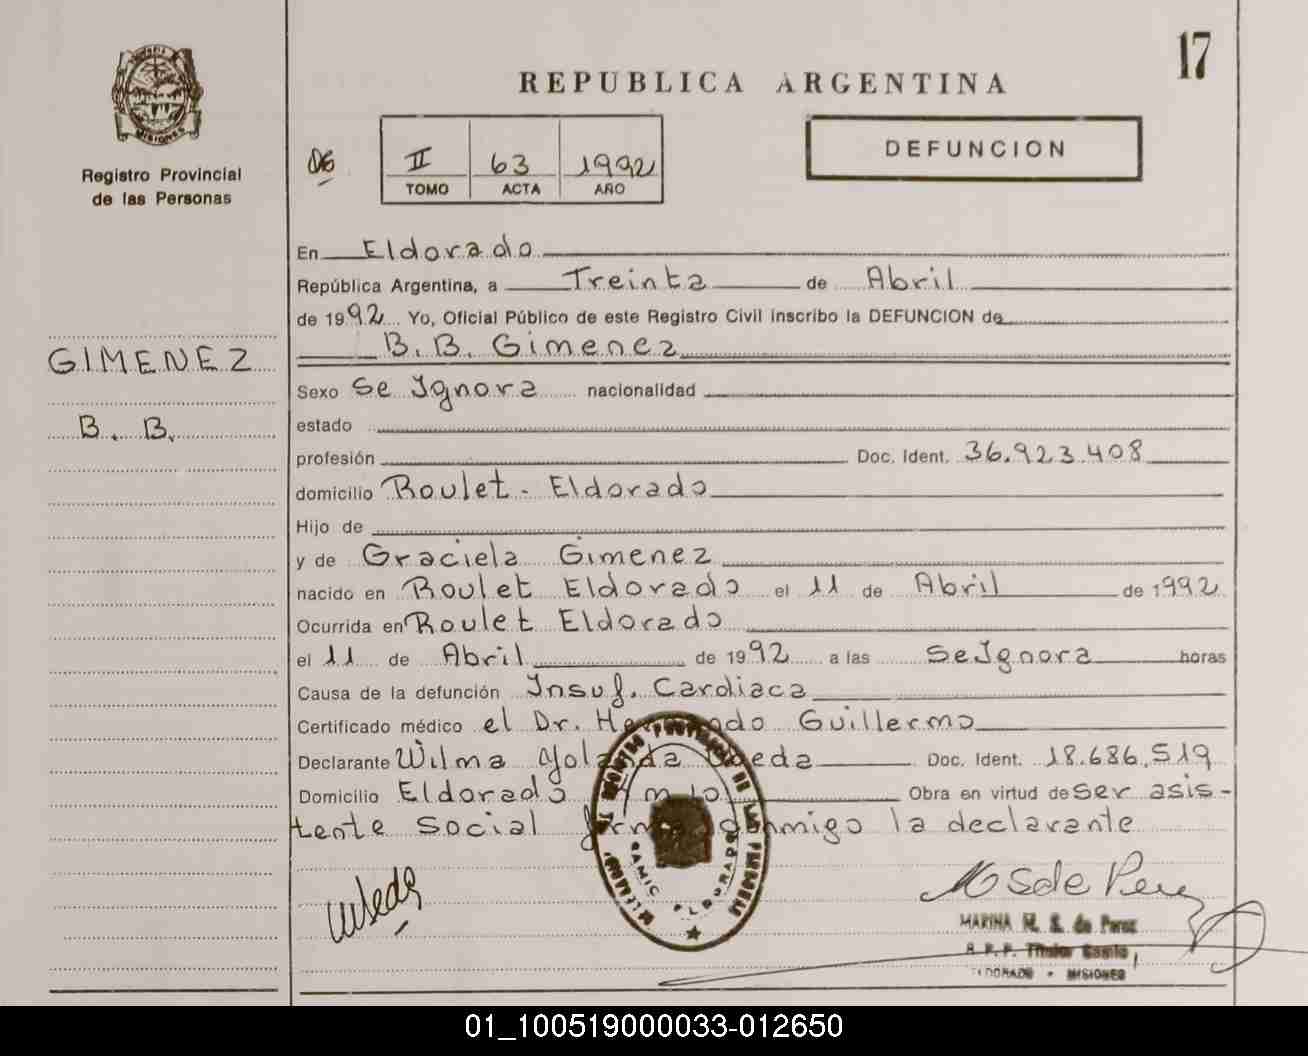 17
REPUBLICA ARGENTINA
MISIONES
Registro Provincial
de las Personas
06
II 63 1992
TOMO ACTA AÑO
DEFUNCION
En Eldorado
República Argentina, a Treinta de Abril
de 1992 Yo, Oficial Público de este Registro Civil inscribo la DEFUNCION de
B. B. Gimenez
GIMENEZ
B. B.
Sexo Se Ignora nacionalidad
estado
profesión Doc. Ident. 36.923.408
domicilio Roulet - Eldorado
Hijo de
y de Graciela Gimenez
nacido en Roulet Eldorado el 11 de Abril de 1992
Ocurrida en Roulet Eldorado
el 11 de Abril de 1992 a las Se Ignora horas
Causa de la defunción Insuf. Cardiaca
Certificado médico el Dr. Guillermo
Declarante Wilma Doc. Ident. 18.686.519
Domicilio Eldorado Obra en virtud de ser asis-
tente Social la declarante
MARINA M. S. de Perez
ELDORADO - MISIONES
01_100519000033-012650